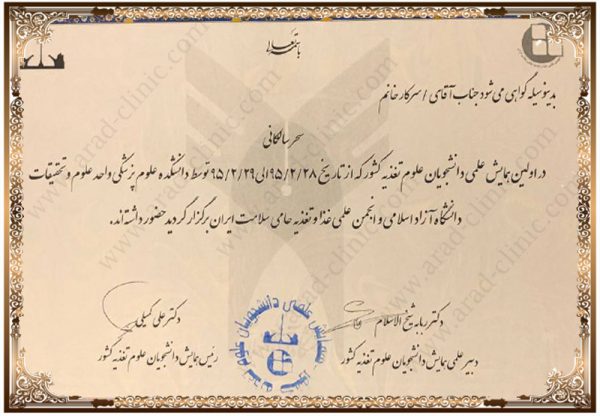 باسمه تعالی
بدینوسیله گواهی می شود جناب آقای / سرکار خانم
سحر سالکانی
در اولین همایش علمی دانشجویان علوم تغذیه کشور که از تاریخ ۹۵/۲/۲۸ الی ۹۵/۲/۲۹ توسط دانشکده علوم پزشکی واحد علوم و تحقیقات
دانشگاه آزاد اسلامی و انجمن علمی غذا و تغذیه حامی سلامت ایران برگزار گردید حضور داشته‌اند.
دکتر ربابه شیخ الاسلام
دبیر علمی همایش دانشجویان علوم تغذیه کشور
دکتر علی گمیلی
رئیس همایش دانشجویان علوم تغذیه کشور
www.arad-clinic.com